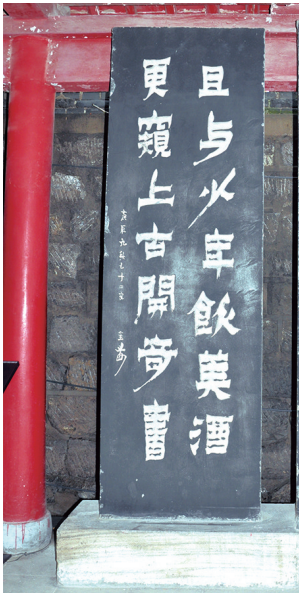 且与少年飲美酒
更窺上古開奇書